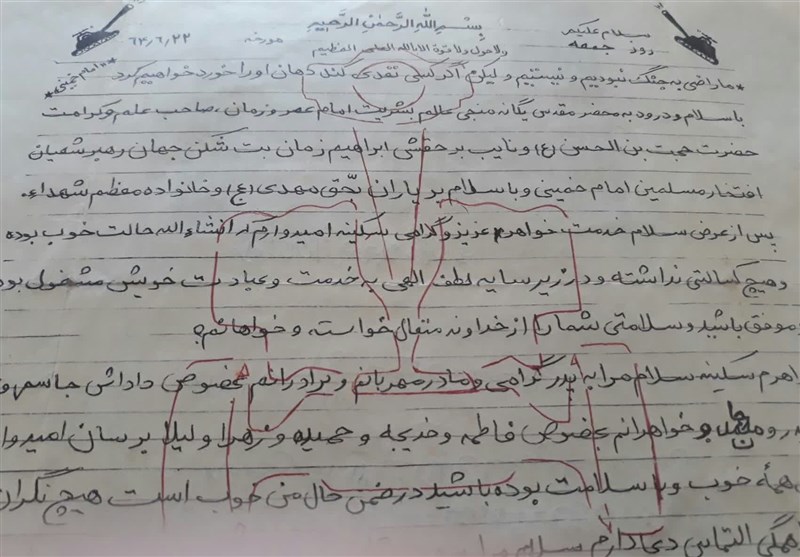 بسلام علیکم
بِسْمِ اللّٰهِ الرَّحْمٰنِ الرَّحیمِ
مورخه ۶۳/۶/۲۲
روز جمعه
ولاحول ولاقوة الابالله العلی العظیم
*ماراضی به جنگ نبودیم و نیستیم ولیکن اگر کسی تعدی کند دهان او را خورد خواهیم کرد.* «امام خمینی»
باسلام و درود به محضر مقدس یگانه منجی عالم بشریت امام عصر و زمان، صاحب علم و کرامت
حضرت حجت بن الحسن (ع) و نایب برحقش ابراهیم زمان بت شکن جهان رهبر شیعیان
افتخار مسلمین امام خمینی و با سلام بر یاران بحق مهدی (عج) و خانواده معظم شهداء.
پس از عرض سلام خدمت خواهرم عزیز و گرامی سکینه امیدوارم که انشاء الله حالت خوب بوده
و هیچ کسالتی نداشته و در زیر سایه لطف الهی به خدمت و عبادت خویش مشغول بود
موفق باشید و سلامتی شما را از خداوند متعال خواسته و خواهانم.
اهرم سکینه سلام مرا به پدر گرامی و مادر مهربانم و برادرانم بخصوص داداش جاسم و
و خواهرانم بخصوص فاطمه و خدیجه و حمیده و زهرا و لیلا برسان امیدوا
همهٔ خوب و با سلامت بوده باشید در ضمن حال من خوب است هیچ نگران
همگی التماس دعا دارم سلام مرا